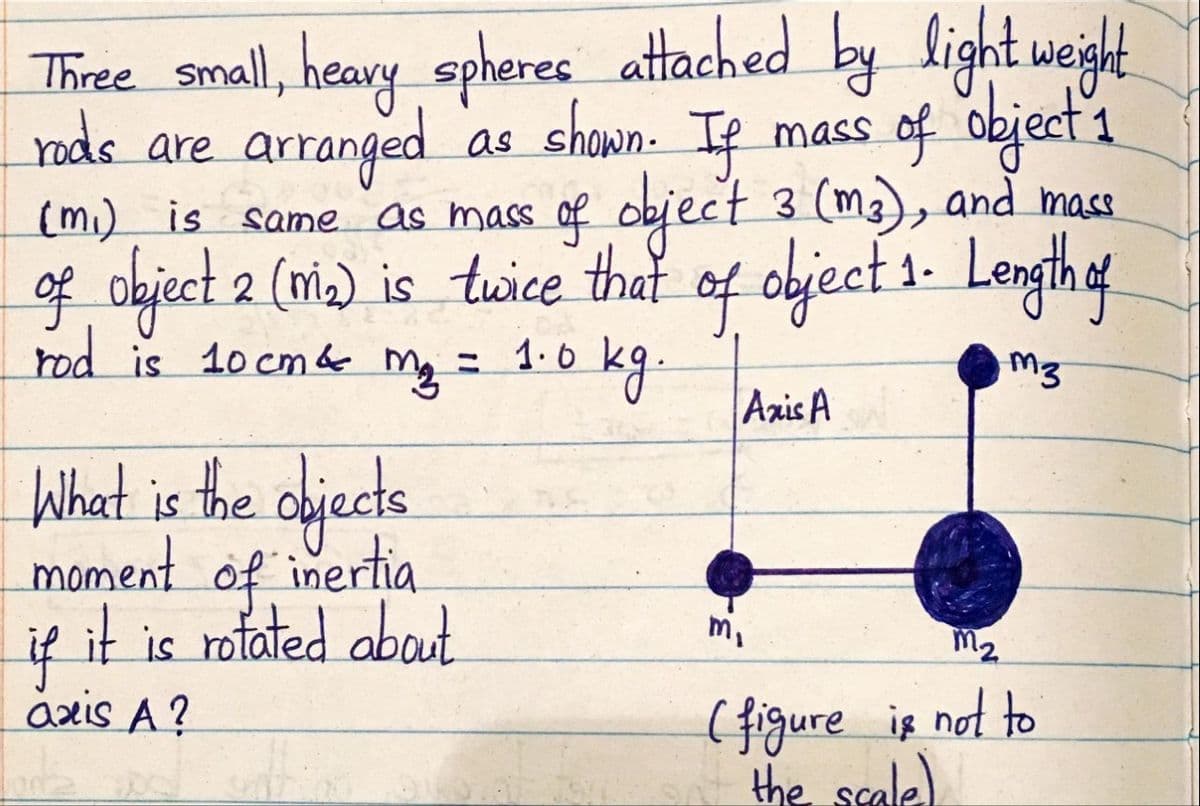 Three small, heavy spheres attached by light weight
rods are arranged as shown. If mass of object 1
(m₁) is same as mass of object 3 (m₃), and mass
of object 2 (m₂) is twice that of object 1. Length of
rod is 10 cm & m₃ = 1.0 kg.
m₃
Axis A
What is the objects
moment of inertia
if it is rotated about
axis A?
m₁
m₂
(figure is not to
the scale)